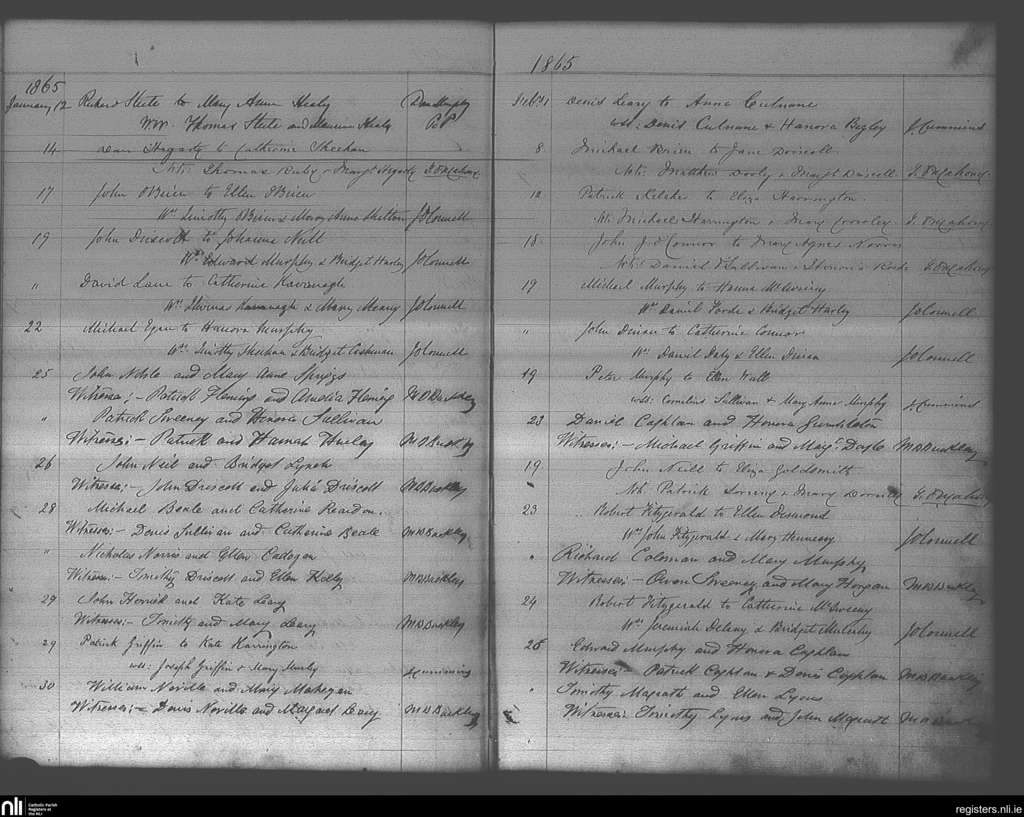 1865
January 12 Richard Steele to Mary Anne Healy Dan Murphy
Wit. Thomas Stute and Healy P.P.
14 Hegarty to Catherine Sheehan
Wit: Thomas Ruby & Margt Hegarty J. O'Mahony
17 John OBrien to Ellen OBrien
Wit Timothy OBrien & Mary Anne Shelton JOConnell
19 John Driscoll to Johanna Neill
Wit Edward Murphy & Bridget Harley JOConnell
" David Lane to Catherine Kavanagh
Wit Thomas Kavanagh & Mary Meany JOConnell
22 Michael Egan to Hanora Murphy
Wit Timothy Sheehan & Bridget Cashman JOConnell
25 John Noble and Mary Anne Spriggs
Witness:- Patrick Fleming and Amelia Fleming MDBuckley
" Patrick Sweeney and Honora Sullivan
Witnesses:- Patrick and Hannah Hurley MDBuckley
26 John Neil and Bridget Lynch
Witness:- John Driscoll and Julia Driscoll MDBuckley
28 Michael Beale and Catherine Reardon
Witnesses:- Denis Sullivan and Catherine Beale MDBuckley
" Nicholas Norris and Ellen Callogan
Witness:- Timothy Driscoll and Ellen Kelly MDBuckley
29 John Herrick and Kate Leary
Witness:- Timothy and Mary Leary MDBuckley
29 Patrick Griffin to Kate Harrington
wit: Joseph Griffin & Mary Murley J Cummins
30 William Neville and Mary Mahegan
Witnesses:- Denis Neville and Margaret Leary MDBuckley
1865
Feb Denis Leary to Anne Culnane
wit: Denis Culnane & Hanora Begley J. Cummins
8 Michael Brien to Jane Driscoll
Wit: Matthew Dooly & Margt Driscoll J. O'Mahony
12 Patrick Keleher to Eliza Harrington
Wit: Michael Harrington & Mary Crowley J. O'Mahony
18 John J. O'Connor to Mary Agnes Norris
Wit: Daniel O'Sullivan & Honoria Roche J. O'Mahony
19 Michael Murphy to Hanna McSweeny
Wit Daniel Forde & Bridget Harley JOConnell
" John Dinan to Catherine Connor
Wit Daniel Daly & Ellen Dinan JOConnell
19 Peter Murphy to Ellen Wall
wit: Cornelius Sullivan & Mary Anne Murphy J. Cummins
23 Daniel Caphlan and Honora Grumbleton
Witnesses:- Michael Griffin and Margt Doyle MDBuckley
19 John Neill to Eliza Goldsmith
Wit. Patrick & Mary J. O'Mahony
23 Robert Fitzgerald to Ellen Desmond
Wit John Fitzgerald & Mary Hennessy JOConnell
" Richard Coleman and Mary Murphy
Witnesses:- Owen Sweeney and Mary Horgan MDBuckley
24 Robert Fitzgerald to Catherine McSweeny
Wit Jeremiah Delany & Bridget Mulcahy JOConnell
26 Edward Murphy and Honora Caphlan
Witnesses:- Patrick Caphlan & Denis Caphlan MDBuckley
" Timothy Magrath and Ellen Lyons
Witnesses: Timothy Lyons and John Magrath MDBuckley
nli Catholic Parish
Registers at
the NLI
registers.nli.ie